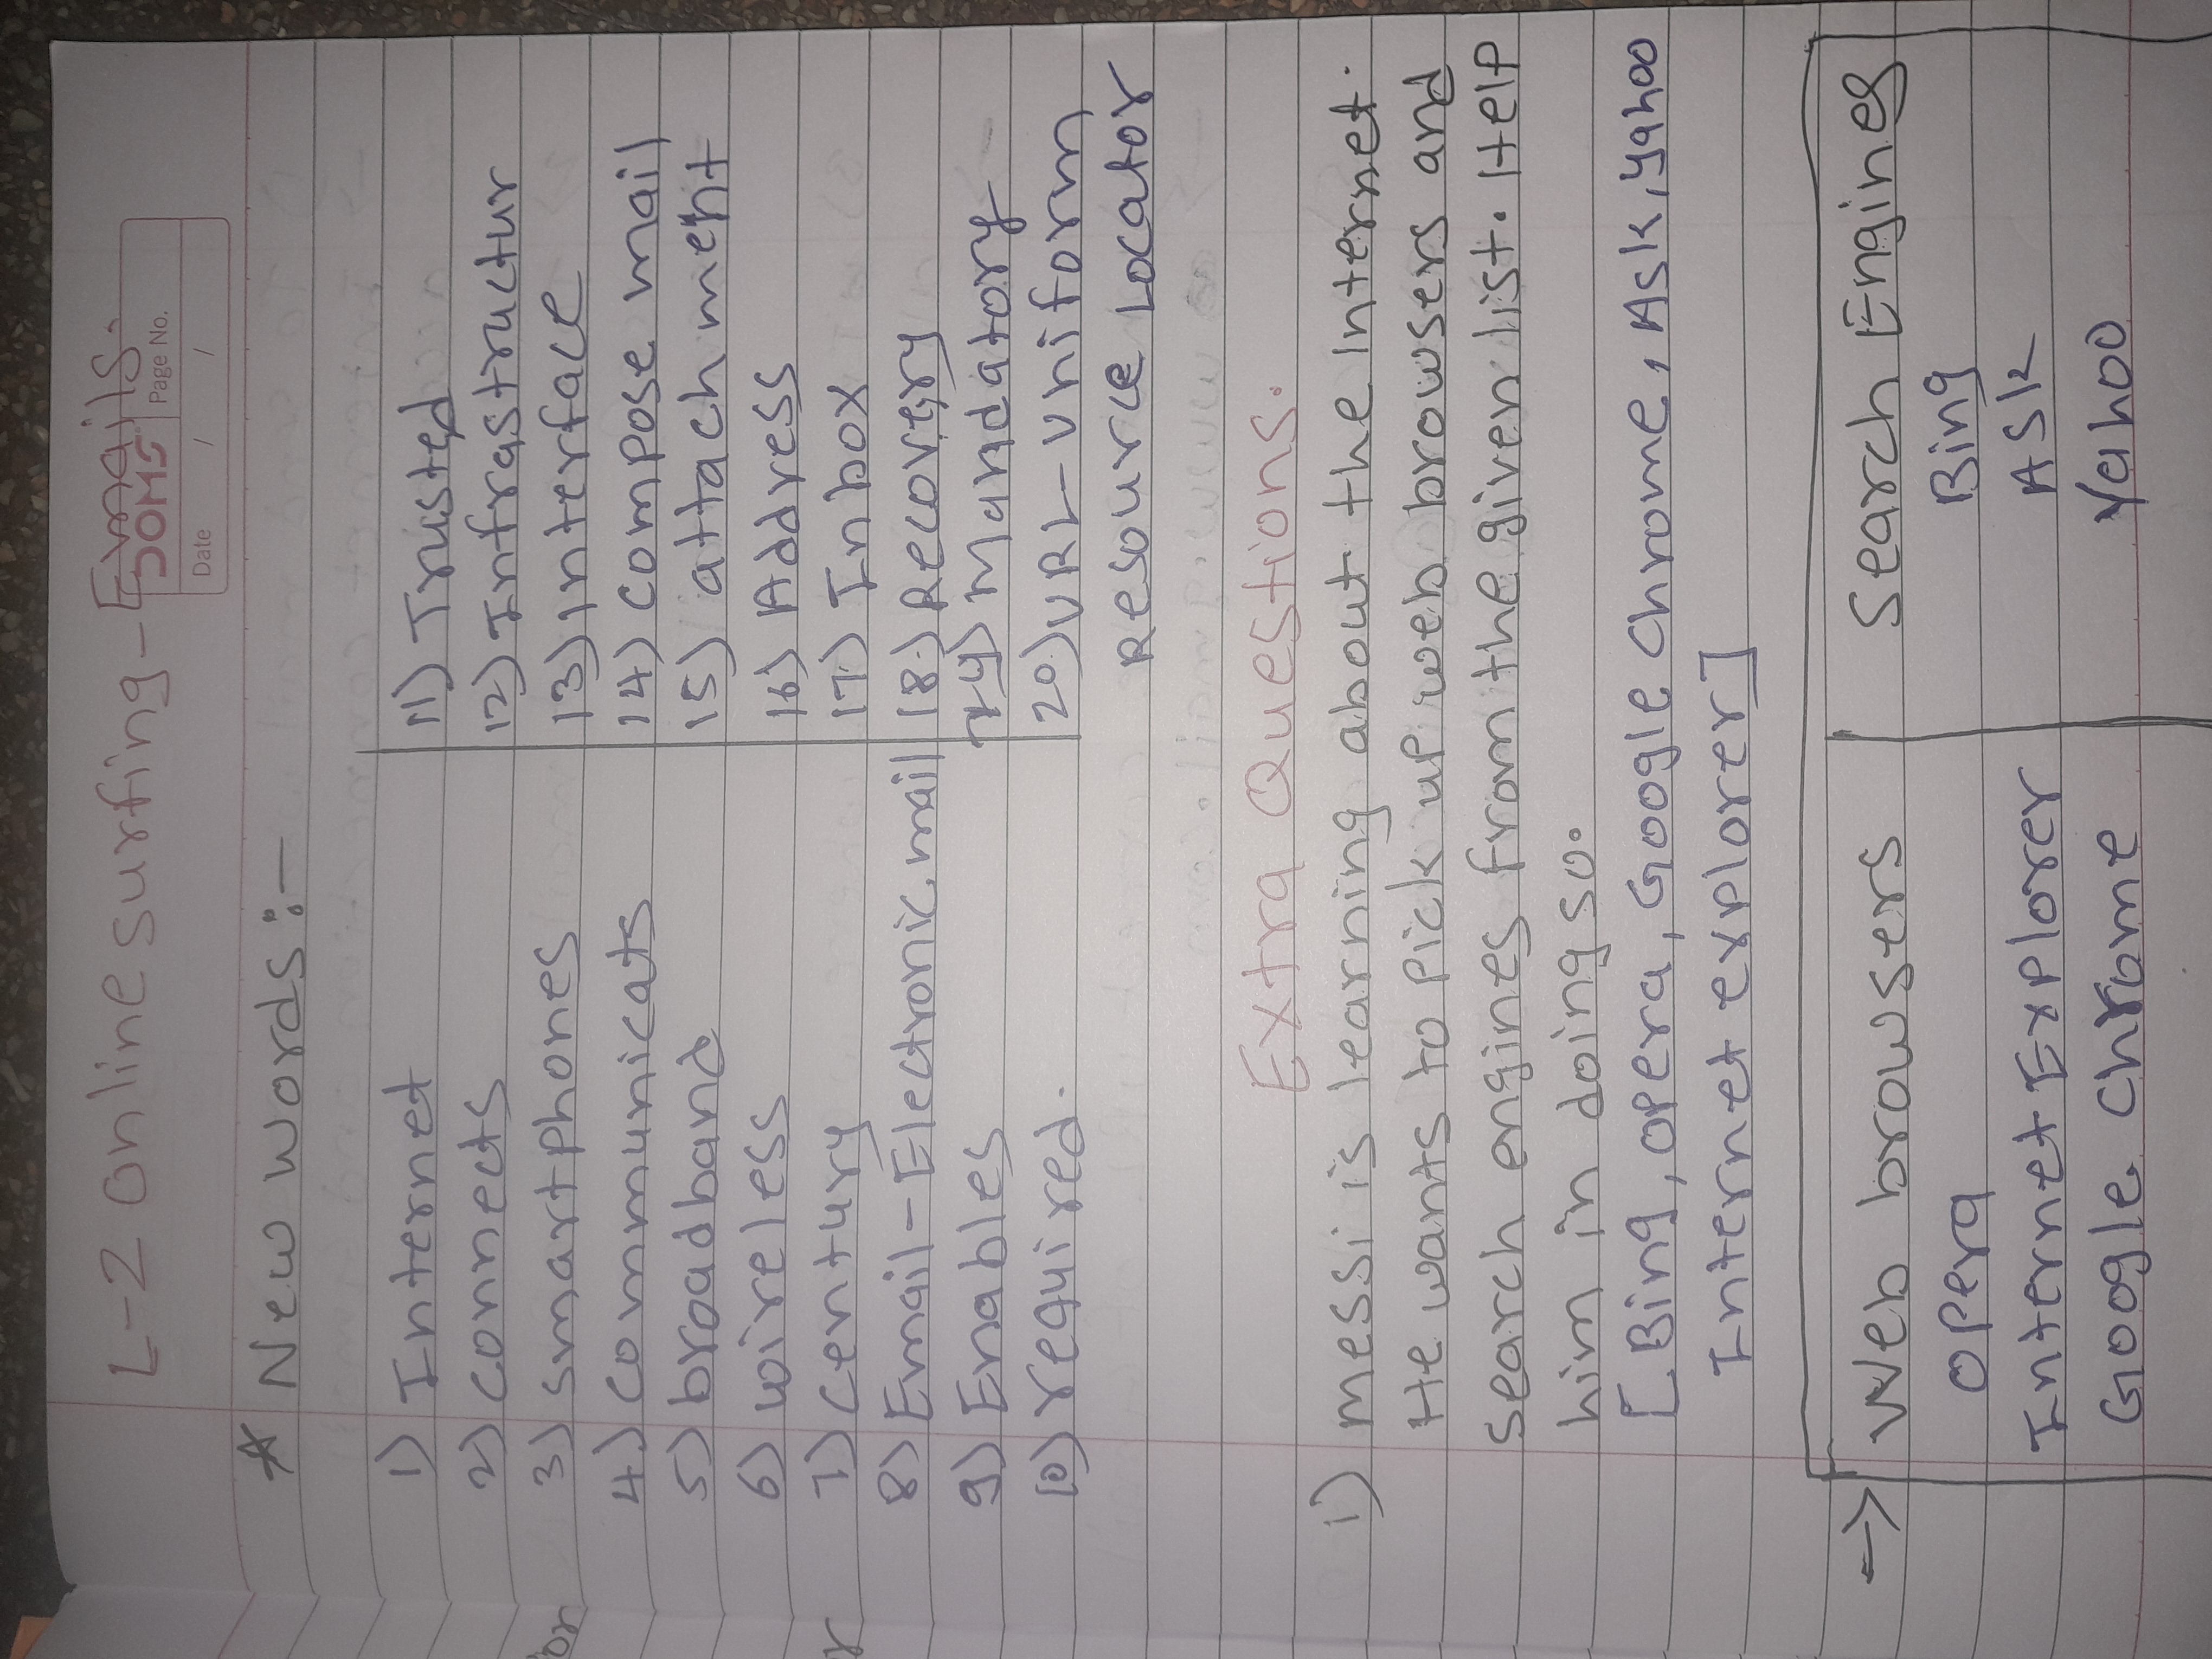 L-2 Online surfing - Emails.
DOMS
Page No.
Date / /
* New words:-
1) Internet
2) connects
3) smartphones
4) communicats
5) broadband
6) wireless
7) century
8) Email-Electronic mail
9) Enables
10) required.
11) Trusted
12) Infrastructur
13) Interface
14) compose mail
15) attachment
16) Address
17) Inbox
18) Recovery
19) Mandatory
20) URL-Uniform
Resource Locator
Extra Questions.
i) messi is learning about the Internet.
He wants to pick up web browsers and
search engines from the given list. Help
him in doing so.
[Bing, Opera, Google Chrome, Ask, yahoo
Internet explorer]
→ Web browsers
Search Engines
Opera
Bing
Internet Explorer
Ask
Google Chrome
Yahoo
or
r